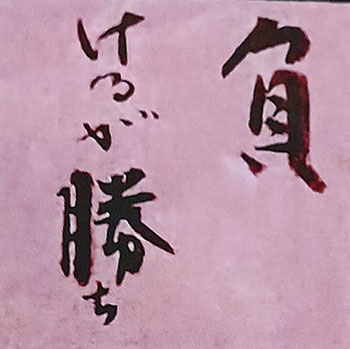 負
けるが
勝ち